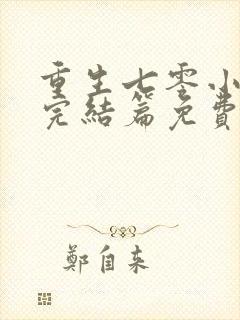 重生七零小
完結篇免費
鄭自来